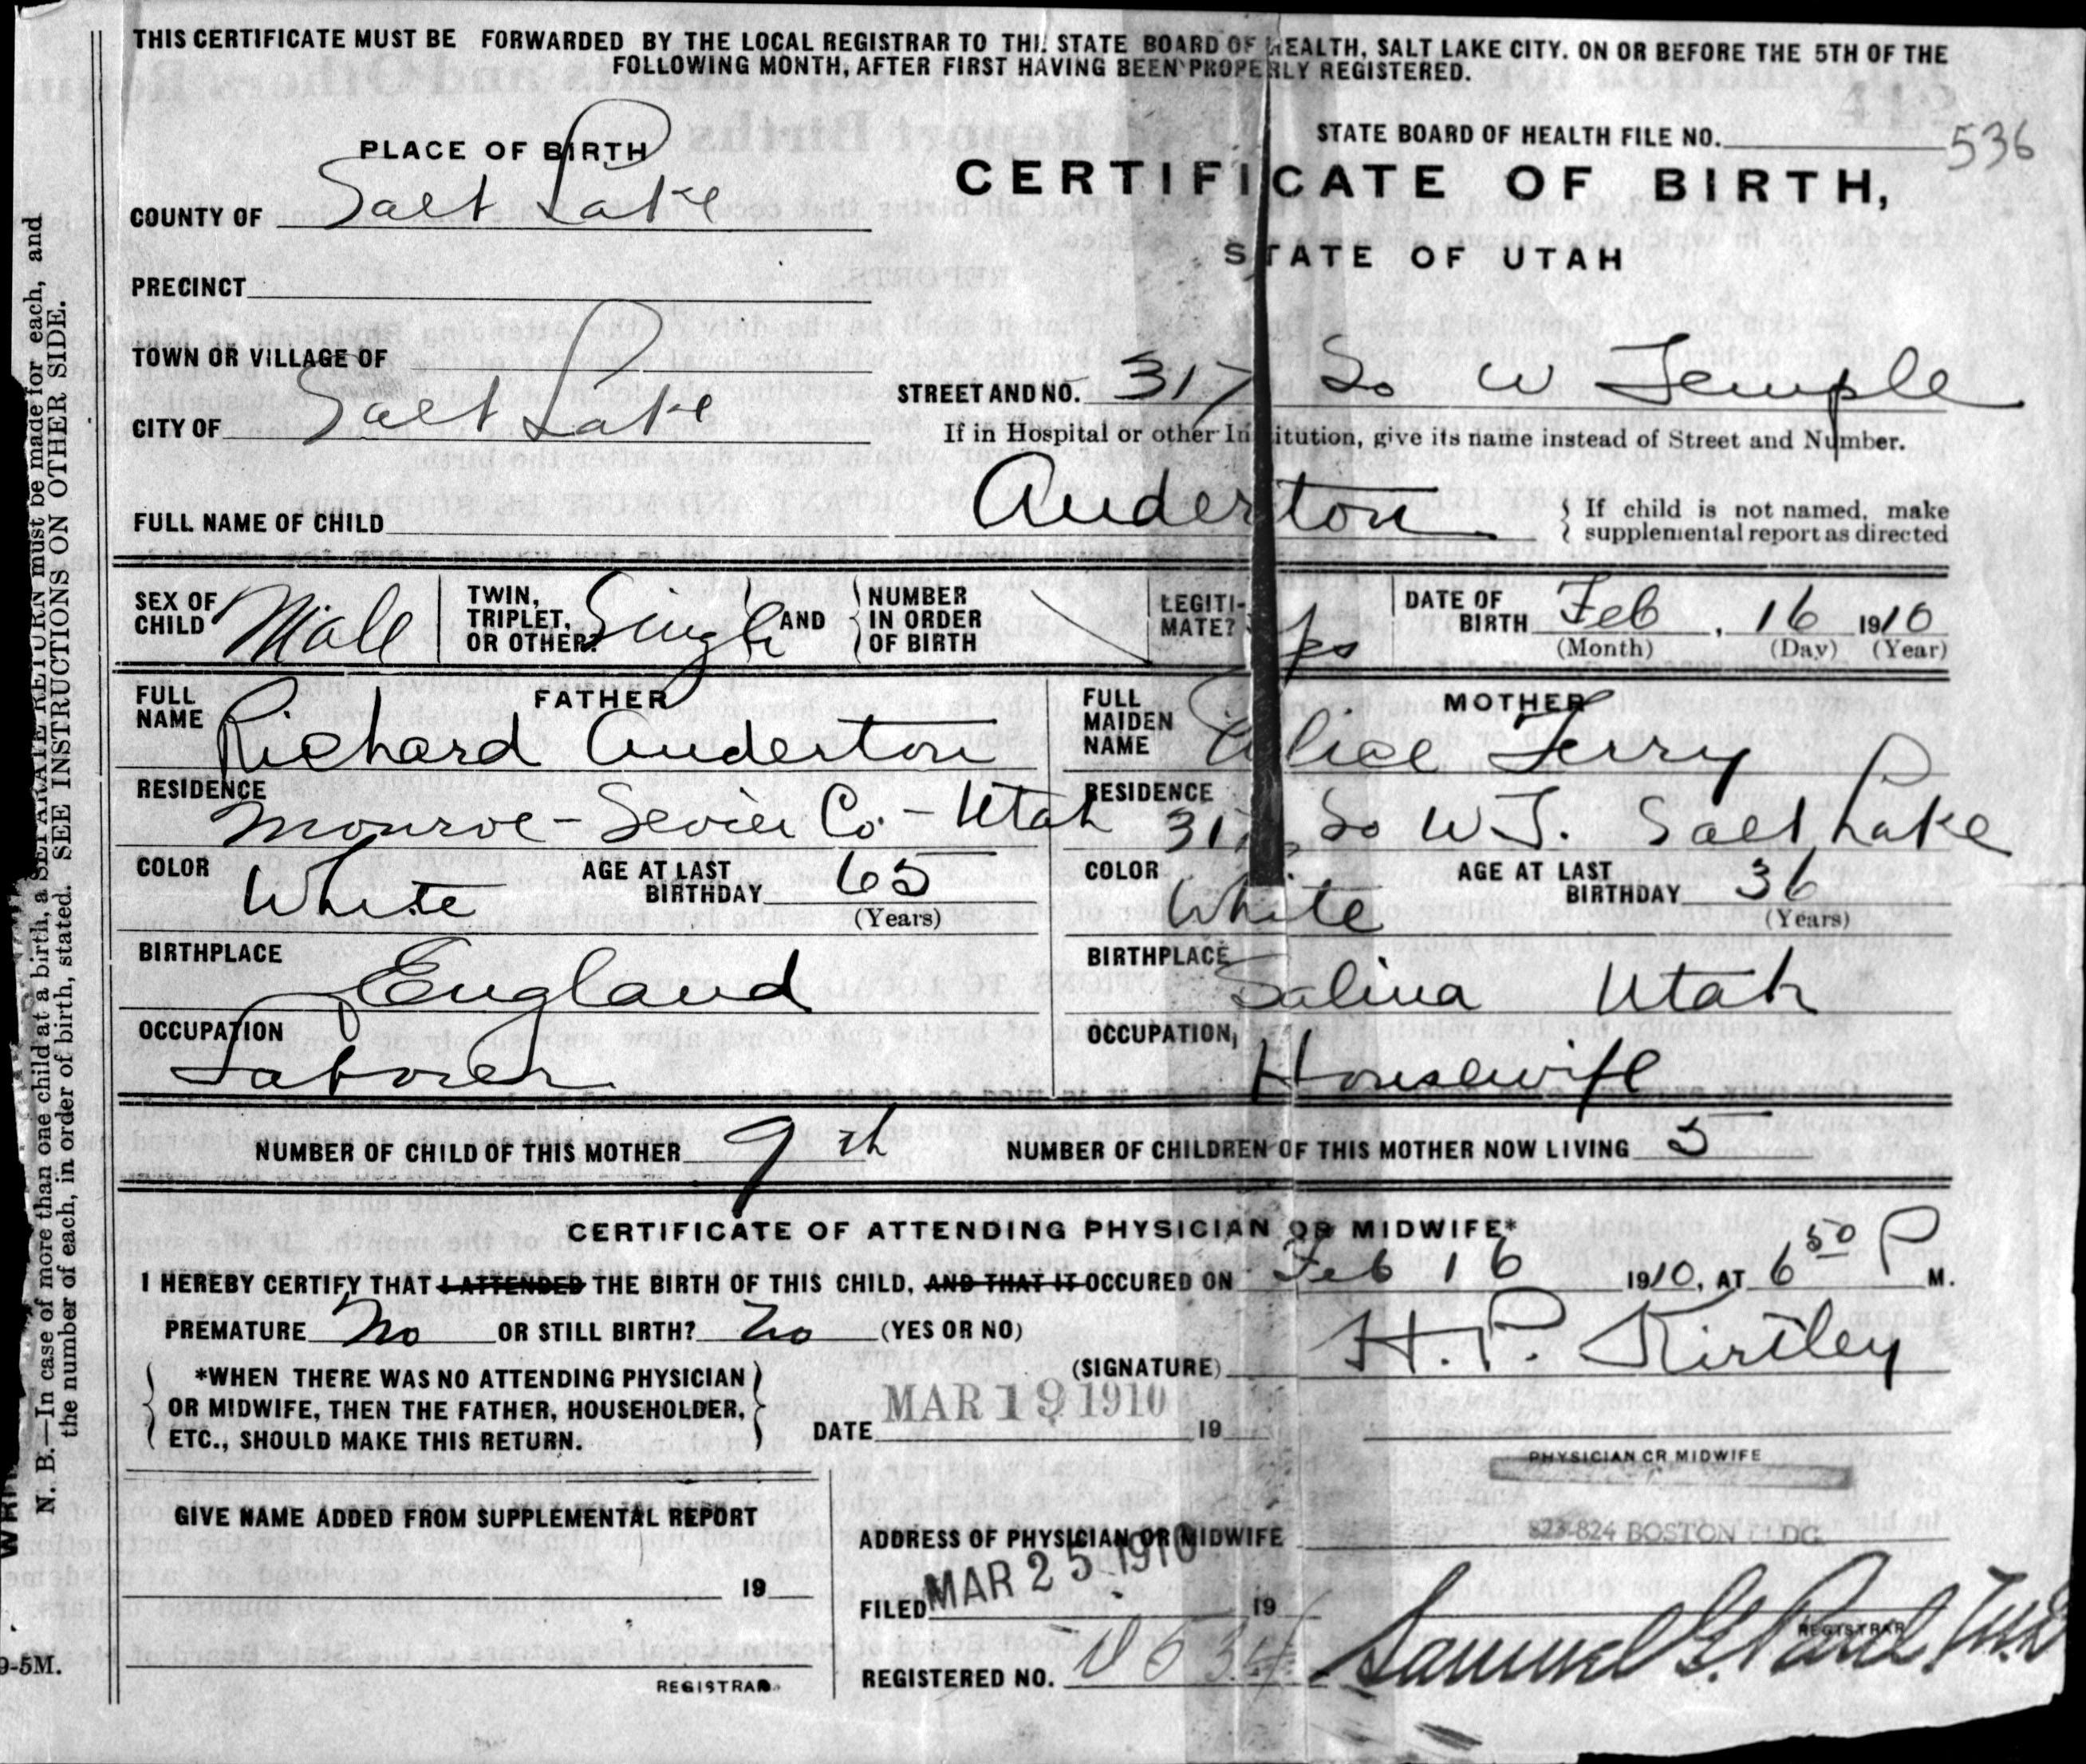 THIS CERTIFICATE MUST BE FORWARDED BY THE LOCAL REGISTRAR TO THE STATE BOARD OF HEALTH, SALT LAKE CITY. ON OR BEFORE THE 5TH OF THE
FOLLOWING MONTH, AFTER FIRST HAVING BEEN PROPERLY REGISTERED.
STATE BOARD OF HEALTH FILE NO. 536
CERTIFICATE OF BIRTH,
STATE OF UTAH
PLACE OF BIRTH
COUNTY OF Salt Lake
PRECINCT
TOWN OR VILLAGE OF
CITY OF Salt Lake
STREET AND NO. 317 So W Temple
If in Hospital or other Institution, give its name instead of Street and Number.
FULL NAME OF CHILD Anderton
If child is not named, make
supplemental report as directed
SEX OF CHILD Male
TWIN, TRIPLET, OR OTHER? Single AND NUMBER IN ORDER OF BIRTH
LEGITIMATE? yes
DATE OF BIRTH Feb, 16 1910
(Month) (Day) (Year)
FATHER
FULL NAME Richard Anderton
RESIDENCE Monroe - Sevier Co. - Utah
COLOR White AGE AT LAST BIRTHDAY 65
(Years)
BIRTHPLACE England
OCCUPATION Laborer
MOTHER
FULL MAIDEN NAME Alice Terry
RESIDENCE 317 So W T. Salt Lake
COLOR White AGE AT LAST BIRTHDAY 36
(Years)
BIRTHPLACE Salina Utah
OCCUPATION, Housewife
NUMBER OF CHILD OF THIS MOTHER 9th NUMBER OF CHILDREN OF THIS MOTHER NOW LIVING 5
CERTIFICATE OF ATTENDING PHYSICIAN OR MIDWIFE*
I HEREBY CERTIFY THAT I ATTENDED THE BIRTH OF THIS CHILD, AND THAT IT OCCURED ON Feb 16 1910, AT 6 50 P M.
PREMATURE No OR STILL BIRTH? No (YES OR NO)
(SIGNATURE) H. P. Kirtley
*WHEN THERE WAS NO ATTENDING PHYSICIAN
OR MIDWIFE, THEN THE FATHER, HOUSEHOLDER,
ETC., SHOULD MAKE THIS RETURN.
DATE MAR 19 1910 19
PHYSICIAN OR MIDWIFE
GIVE NAME ADDED FROM SUPPLEMENTAL REPORT
19
REGISTRAR.
ADDRESS OF PHYSICIAN OR MIDWIFE 823-824 BOSTON BLDG.
FILED MAR 25 1910 19
REGISTERED NO.
Samuel G. Paul. M.D.
REGISTRAR
N. B.—In case of more than one child at a birth, a SEPARATE RETURN must be made for each, and
the number of each, in order of birth, stated. SEE INSTRUCTIONS ON OTHER SIDE.
9-5M.